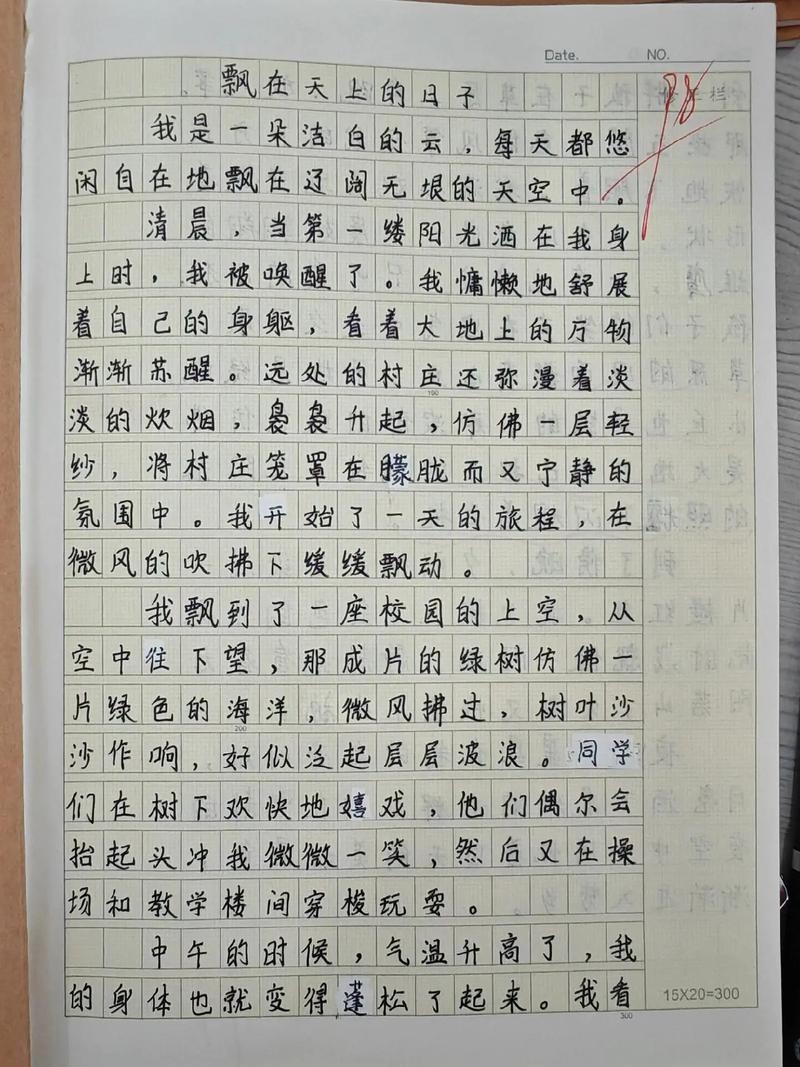 Date.
NO.
98
飘在天上的日子
我是一朵洁白的云，每天都悠
闲自在地飘在辽阔无垠的天空中。
清晨，当第一缕阳光洒在我身
上时，我被唤醒了。我慵懒地舒展
着自己的身躯，看着大地上的万物
渐渐苏醒。远处的村庄还弥漫着淡
100
淡的炊烟，袅袅升起，仿佛一层轻
纱，将村庄笼罩在朦胧而又宁静的
氛围中。我开始了一天的旅程，在
微风的吹拂下缓缓飘动。
我飘到了一座校园的上空，从
空中往下望，那成片的绿树仿佛一
片绿色的海洋，微风拂过，树叶沙
200
沙作响，好似泛起层层波浪。同学
们在树下欢快地嬉戏，他们偶尔会
抬起头冲我微微一笑，然后又在操
场和教学楼间穿梭玩耍。
中午的时候，气温升高了，我
的身体也就变得蓬松了起来。我看
15X20=300
300